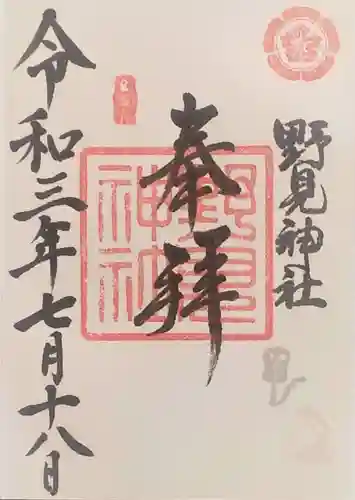 野見神社
奉拝
野見神社
令和三年七月十八日